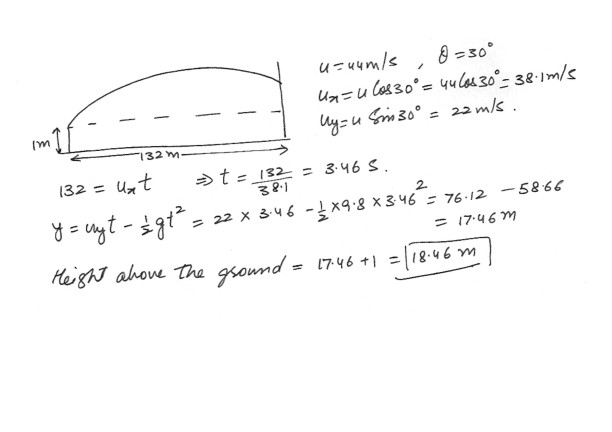 u = 44 m/s , θ = 30°
uₓ = u Cos30° = 44 Cos30° = 38.1 m/s
uy = u Sin30° = 22 m/s.
1m
132 m
132 = uₓt ⇒ t = 132/38.1 = 3.46 S.
y = uyt - ½gt² = 22 × 3.46 - ½ × 9.8 × 3.46² = 76.12 - 58.66
= 17.46 m
Height above the ground = 17.46 + 1 = 18.46 m